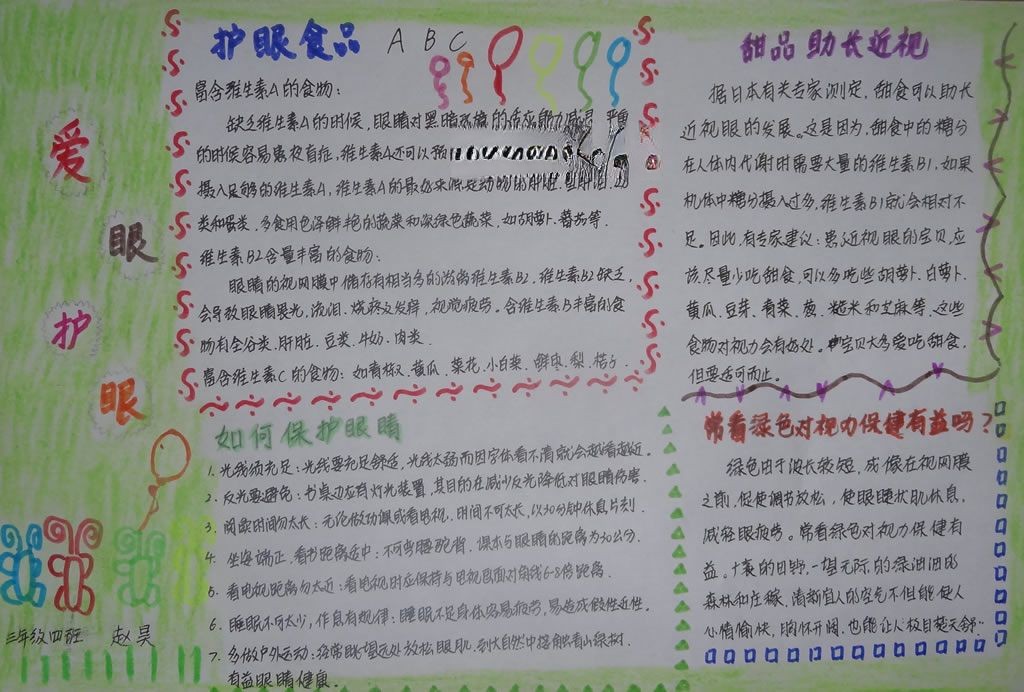 爱
眼
护
眼
三年级四班 赵昊
护眼食品 A B C
富含维生素A的食物：
缺乏维生素A的时候，眼睛对黑暗环境的适应能力减退，严重
的时候容易患夜盲症，维生素A还可以预
摄入足够的维生素A，维生素A的最好来源是动物的肝脏
类和蛋类，多食用色泽鲜艳的蔬菜和深绿色蔬菜，如胡萝卜、蕃茄等．
维生素B2含量丰富的食物：
眼睛的视网膜中储存有相当多的游离维生素B2，维生素B2缺乏，
会导致眼睛畏光，流泪、烧疼及发痒，视觉疲劳。含维生素B丰富的食
物有全谷类、肝脏、豆类、牛奶、肉类．
富含维生素C的食物：如青椒、黄瓜、菜花、小白菜、鲜枣、梨、桔子．
甜品助长近视
据日本有关专家测定，甜食可以助长
近视眼的发展。这是因为，甜食中的糖分
在人体内代谢时需要大量的维生素B1，如果
机体中糖分摄入过多，维生素B1就会相对不
足。因此，有专家建议：患近视眼的宝贝，应
该尽量少吃甜食，可以多吃些胡萝卜、白萝卜、
黄瓜、豆芽、青菜、葱、糙米和芝麻等，这些
食物对视力会有好处。宝贝大多爱吃甜食，
但要适可而止。
如何保护眼睛
1. 光线须充足：光线要充足舒适，光线太弱而因字体看不清就会越看越近。
2. 反光要避免：书桌边应有灯光装置，其目的在减少反光降低对眼睛伤害．
3. 阅读时间勿太长：无论做功课或看电视，时间不可太长，以30分钟休息片刻．
4. 坐姿端正，看书距离适中：不可弯腰驼背，课本与眼睛的距离为30公分．
5. 看电视距离勿太近：看电视时应保持与电视画面对角线6-8倍距离．
6. 睡眠不可太少，作息有规律：睡眠不足身体容易疲劳，易造成假性近性．
7. 多做户外运动：经常眺望远处放松眼肌，到大自然中接触看小绿树．
有益眼睛健康。
常看绿色对视力保健有益吗？
绿色由于波长较短，成像在视网膜
之前，促使调节放松，使眼睫状肌休息，
减轻眼疲劳。常看绿色对视力保健有
益。一望无际的绿油油的
森林和庄稼，清新宜人的空气不但能使人
心情愉快，胸怀开阔，也能让人极目楚天舒．